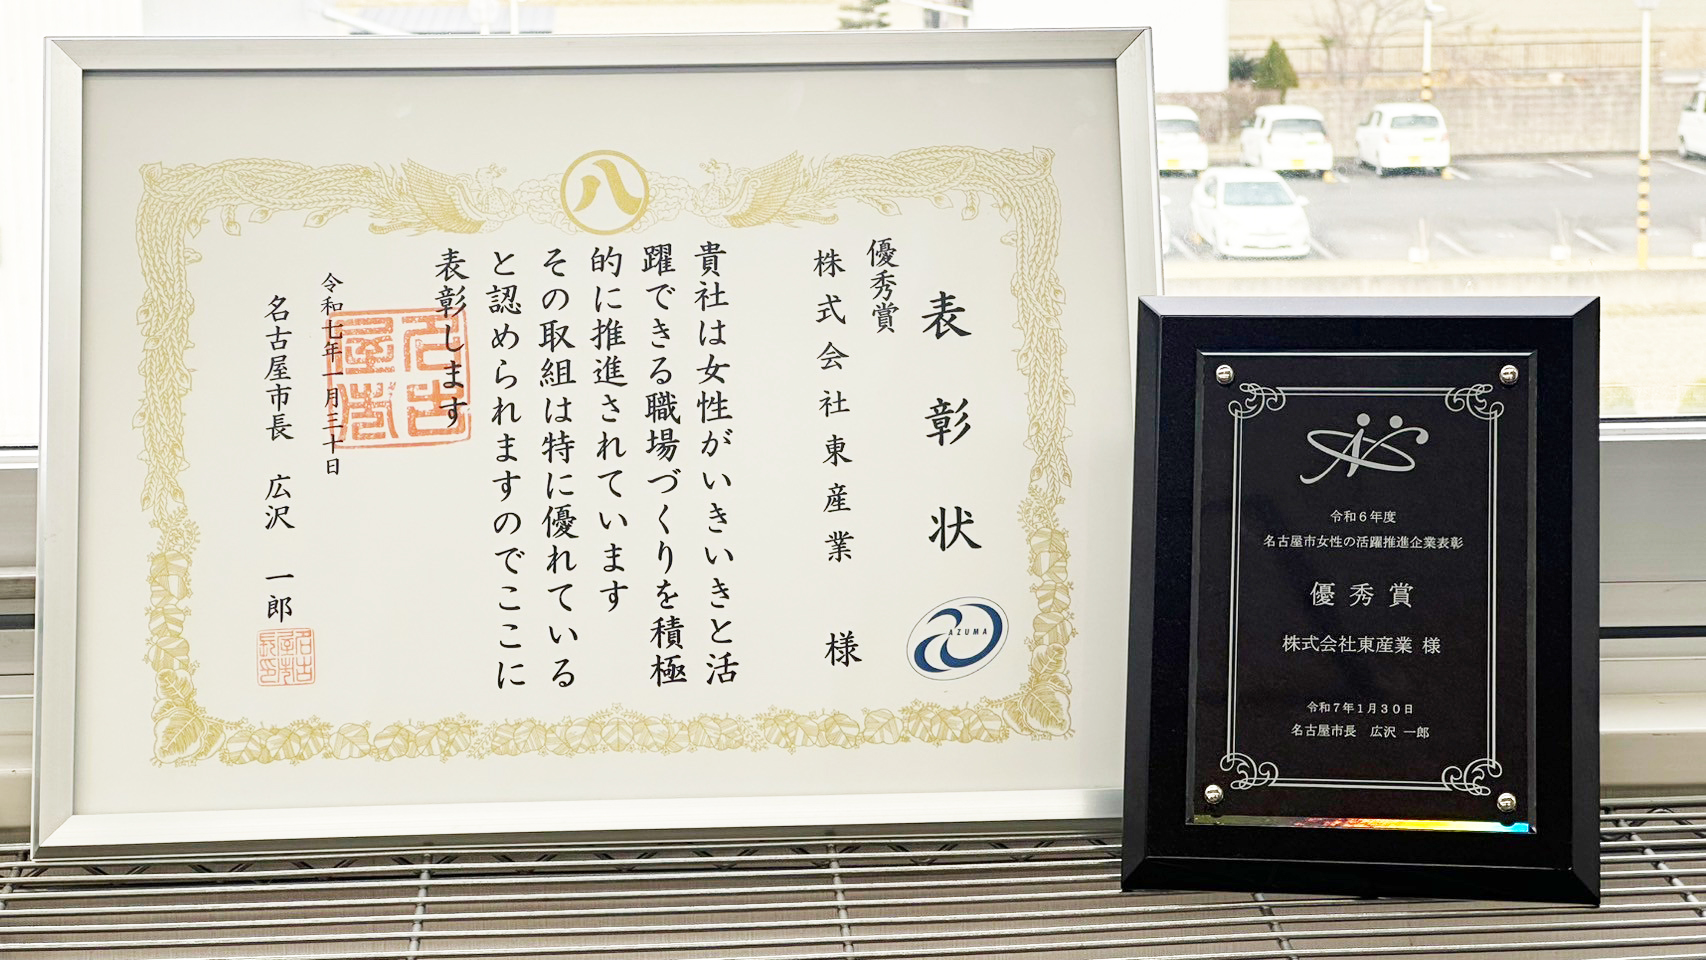 八
表彰状
優秀賞
株式会社東産業 様
貴社は女性がいきいきと活
躍できる職場づくりを積極
的に推進されています
その取組は特に優れている
と認められますのでここに
表彰します
令和七年一月三十日
名古屋市長 広沢 一郎
名古屋市
AZUMA
令和6年度
名古屋市女性の活躍推進企業表彰
優秀賞
株式会社東産業 様
令和7年1月30日
名古屋市長 広沢 一郎